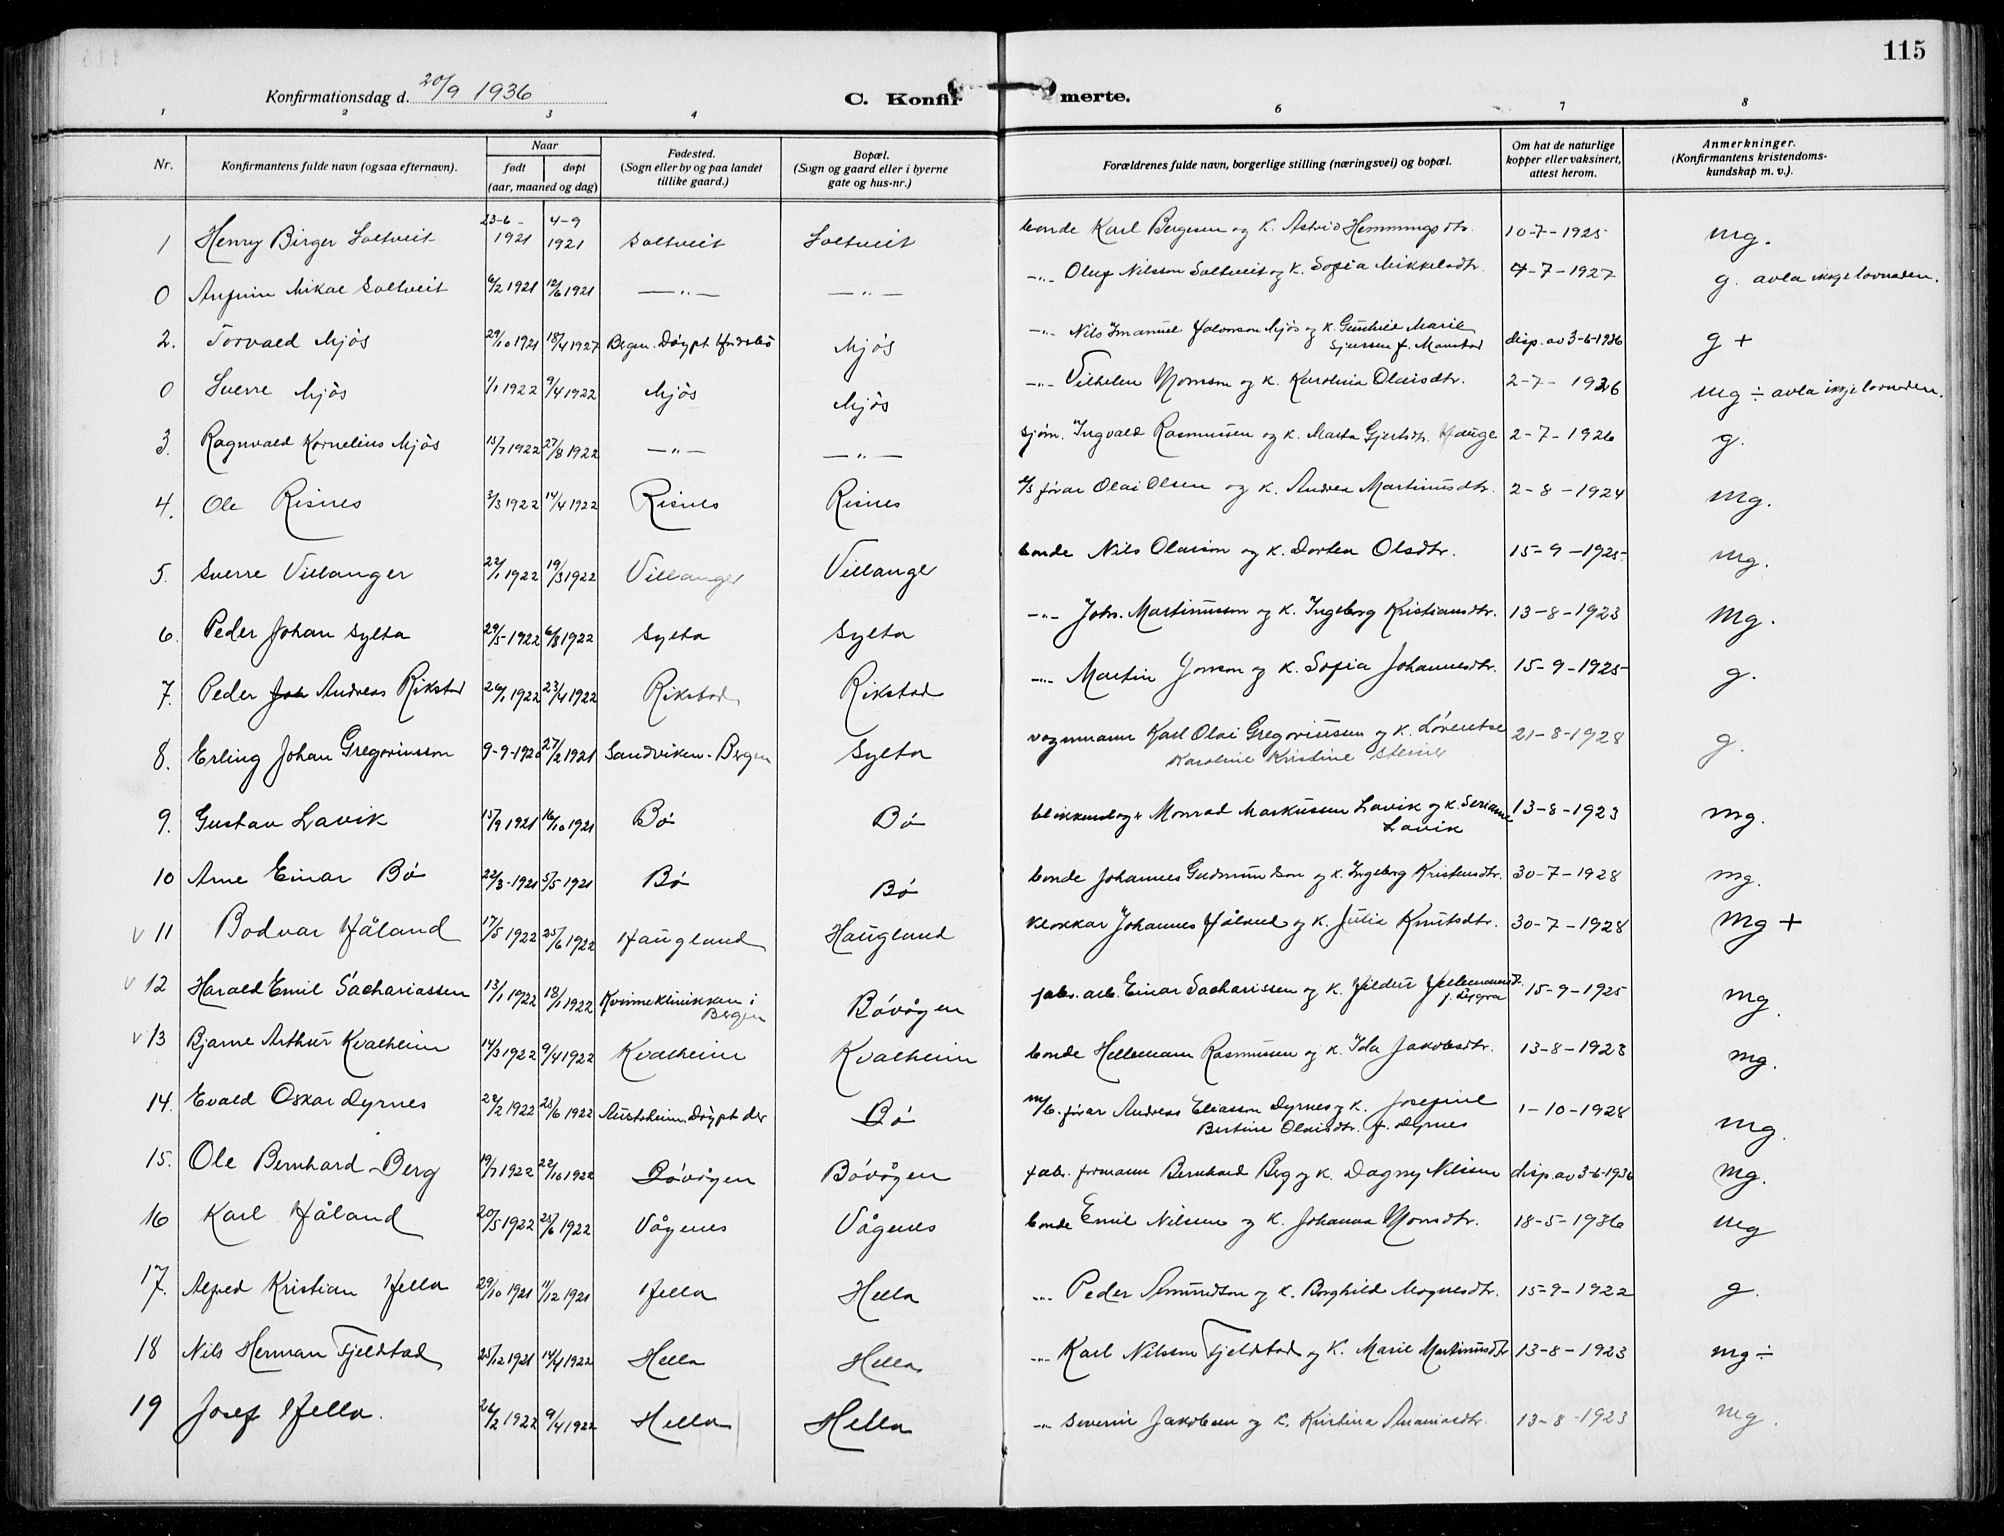 115
Konfirmationsdag d. 20/9 1936
C. Konfirmerte.
1 2 3 4 6 7 8
Nr. Konfirmantens fulde navn (ogsaa efternavn). Naar født døpt (aar, maaned og dag) Fødested. (Sogn eller by og paa landet tillike gaard.) Bopæl. (Sogn og gaard eller i byerne gate og hus-nr.) Forældrenes fulde navn, borgerlige stilling (næringsvei) og bopæl. Om hat de naturlige kopper eller vaksinert, attest herom. Anmerkninger. (Konfirmantens kristendoms- kundskap m. v.).
1 Henry Birger Soltveit 23-6-1921 4-9 1921 Soltveit Soltveit bonde Karl Bergesen og k. Astrid Hemmingsdtr. 10-7-1925 mg.
0 Anfinn Mikal Soltveit 6/2 1921 12/6 1921 —"— —"— -"- Oluf Nilsson Soltveit og k. Sofia Mikkelsdtr. 4-7-1927 g. avla ikkje lovnaden.
2. Torvald Mjøs 29/10 1921 18/4 1927 Bergen. Døypt Mjøs -"- Nils Imanuel Halvorson Mjøs og k. Gunhild Marie
Sjursen f. disp. av 3-6-1936 g +
0 Sverre Mjøs 1/1 1922 9/4 1922 Mjøs Mjøs -"- Vilhelm Monsen og k. Karolina Olaisdtr. 2-7-1926 mg ÷ avla ikkje lovnaden.
3. Ragnvald Kornelius Mjøs 15/7 1922 27/8 1922 —"— —"— sjøm. Ingvald Rasmussen og k. Marta Gjertsdtr. Hauge 2-7-1926 g.
4. Ole Risnes 3/3 1922 14/4 1922 Risnes Risnes førar Olai Olsen og k. Andrea Martinusdtr. 2-8-1924 mg.
5. Sverre Villanger 22/1 1922 19/3 1922 Villanger Villanger bonde Nils Olaison og k. Dortea Olsdtr. 15-9-1925 mg.
6. Peder Johan Sylta 29/5-1922 6/8 1922 Sylta Sylta -"- Johs. Martinusson og k. Ingeborg Kristiansdtr. 13-8-1923 mg.
7. Peder Andreas Rikstad 26/1 1922 23/4 1922 Rikstad Rikstad -"- Martin Jonson og k. Sofia Johannesdtr. 15-9-1925 g.
8. Erling Johan Gregoriusson 9-9-1920 27/2 1921 Sandviken-Bergen Sylta vognmann Karl Olai Gregoriussen og k. Lorentse
Karoline Kristine Steine 21-8-1928 g.
9. Gustav Lavik 15/9 1921 16/10 1921 Bø Bø Monrad Markussen Lavik og k. Serianne
Lavik 13-8-1923 mg.
10 Arne Einar Bø 22/3-1921 5/5 1921 Bø Bø bonde Johannes Gudmundson og k. Ingeborg Kristensdtr. 30-7-1928 mg.
v 11 Bodvar Håland 17/5 1922 25/6 1922 Haugland Haugland klokkar Johannes Håland og k. Julia Knutsdtr. 30-7-1928 mg +
v 12 Harald Emil Sachariassen 13/1 1922 18/1 1922 Kvinneklinikken i
Bergen Bøvågen fabr. arb. Einar Sacharissen og k. Hildur 15-9-1925 mg
v 13 Bjarne Arthur Kvalheim 14/3 1922 9/4 1922 Kvalheim Kvalheim bonde Hellemann Rasmussen og k. Ida Jakobsdtr. 13-8-1923 mg.
14. Evald Oskar Dyrnes 22/2 1922 25/6 1922 Austrheim. Døypt der Bø m/b. førar Andreas Eliasson Dyrnes og k. Josefine
Bertine Olaisdtr. f. Dyrnes 1-10-1928 mg.
15. Ole Bernhard Berg 19/7 1922 22/10 1922 Bøvågen Bøvågen fabr. formann Bernhard Berg og k. Dagny Nilsen disp. av 3-6-1936 mg.
16 Karl Håland 20/5 1922 25/6 1922 Vågenes Vågenes bonde Emil Nilsen og k. Johanna Monsdtr. 18-5-1936 mg
17. Alfred Kristian Hella 29/10 1921 11/12 1921 Hella Hella -"- Peder Amundson og k. Borghild Mognesdtr. 15-9-1922 g.
18 Nils Herman Fjeldstad 25/12 1921 14/4 1922 Hella Hella -"- Karl Nilsson Fjeldstad og k. Marie Martinusdtr 13-8-1923 mg ÷
19 Josef Hella. 26/2 1922 9/4 1922 Hella Hella -"- Severin Jakobsen og k. Kristina Ananiasdtr. 13-8-1923 mg.